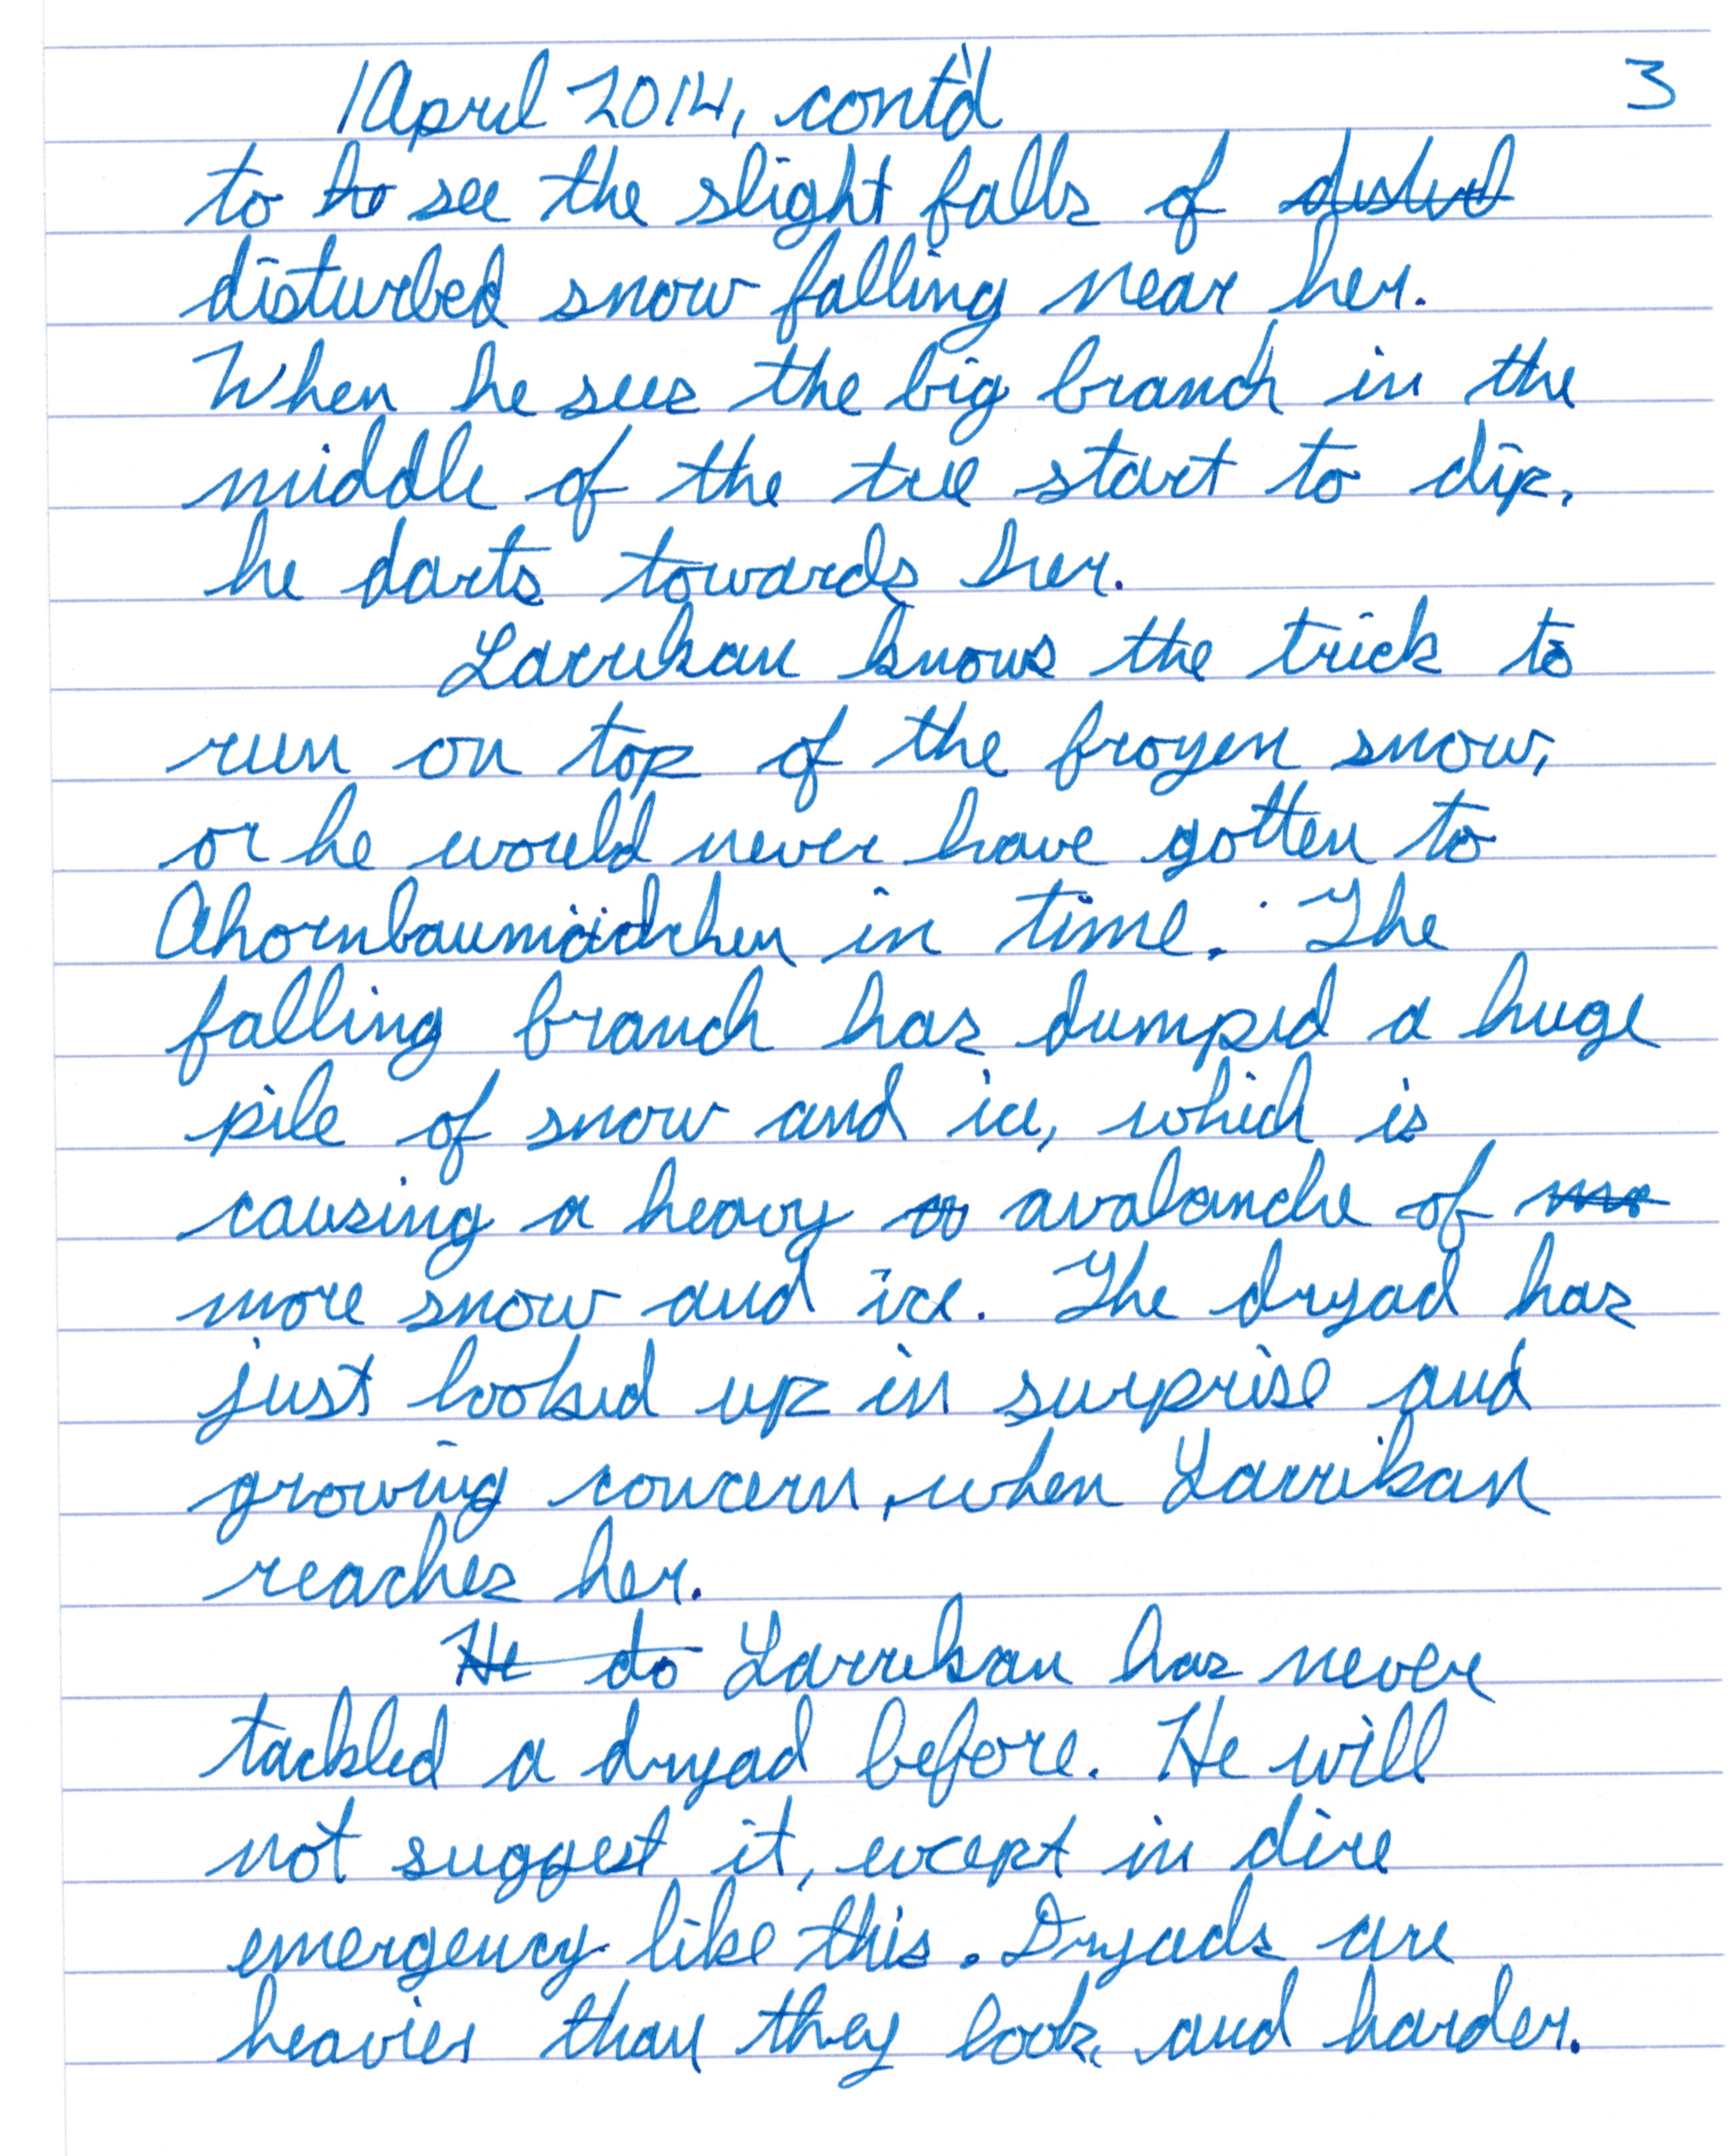 1 April 2014, cont'd
3
to to see the slight falls of
disturbed snow falling near her.
When he sees the big branch in the
middle of the tree start to dip,
he darts towards her.
Larrikan knows the trick to
run on top of the frozen snow,
or he would never have gotten to
Ahornbaumädchen in time. The
falling branch has dumped a huge
pile of snow and ice, which is
causing a heavy avalanche of
more snow and ice. The dryad has
just looked up in surprise and
growing concern, when Larrikan
reaches her.
He do Larrikan has never
tackled a dryad before. He will
not suggest it, except in dire
emergency like this. Dryads are
heavier than they look, and harder.